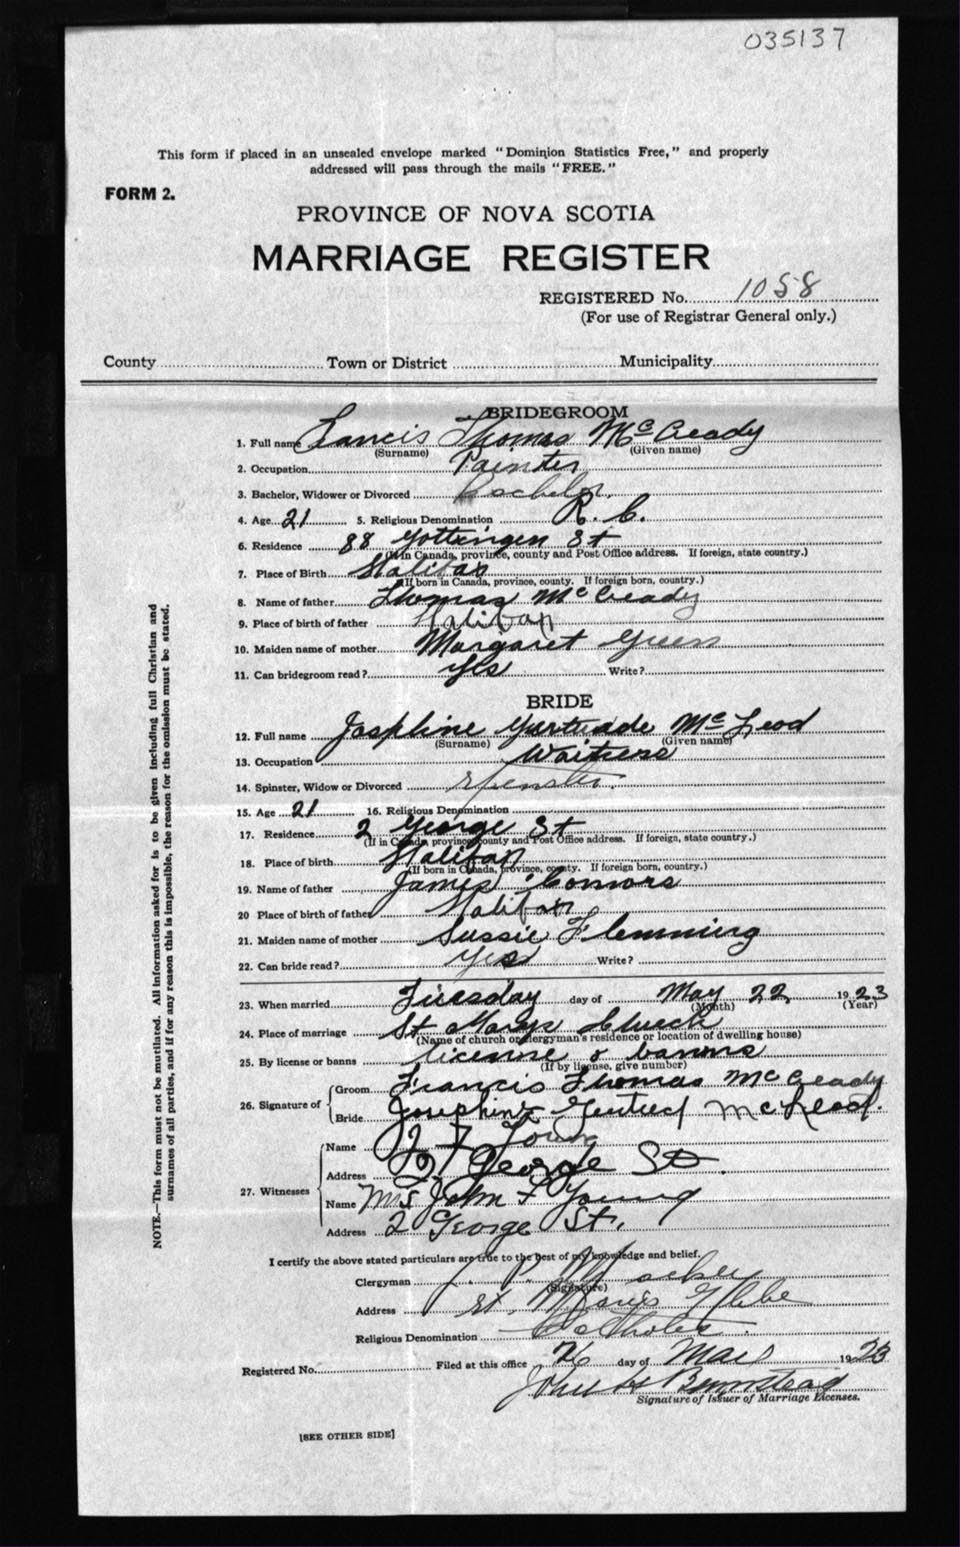 035137
This form if placed in an unsealed envelope marked "Dominion Statistics Free," and properly
addressed will pass through the mails "FREE."
FORM 2.
PROVINCE OF NOVA SCOTIA
MARRIAGE REGISTER
REGISTERED No. 1058
(For use of Registrar General only.)
County Town or District Municipality
BRIDEGROOM
1. Full name Francis Thomas McCready
(Surname) (Given name)
2. Occupation Painter
3. Bachelor, Widower or Divorced Bachelor.
4. Age 21 5. Religious Denomination R. C.
6. Residence 88 Gottingen St
(If in Canada, province, county and Post Office address. If foreign, state country.)
7. Place of Birth Halifax
(If born in Canada, province, county. If foreign born, country.)
8. Name of father Thomas McCready
9. Place of birth of father Halifax
10. Maiden name of mother Margaret Green
11. Can bridegroom read? Yes Write?
BRIDE
12. Full name Josphine Gertrude McLeod
(Surname) (Given name)
13. Occupation Waitress
14. Spinster, Widow or Divorced Spinster.
15. Age 21 16. Religious Denomination
17. Residence 2 George St
(If in Canada, province, county and Post Office address. If foreign, state country.)
18. Place of birth Halifax
(If born in Canada, province, county. If foreign born, country.)
19. Name of father James Connors
20 Place of birth of father Halifax
21. Maiden name of mother Sussie Flemming
22. Can bride read? Yes Write?
23. When married Tuesday day of May 22 1923
(Month) (Year)
24. Place of marriage St Marys Church
(Name of church or clergyman's residence or location of dwelling house)
25. By license or banns license & banns
(If by license, give number)
26. Signature of Groom Francis Thomas McCready
Bride Josephine McLeod.
27. Witnesses
Name Young
Address 2 George St.
Name Mrs John F Young
Address 2 George St.
I certify the above stated particulars are true to the best of my knowledge and belief.
Clergyman
(Signature)
Address St. Marys Glebe
Religious Denomination Catholic.
Registered No. Filed at this office 26 day of May 1923
John H Bumstead
Signature of Issuer of Marriage Licenses.
[SEE OTHER SIDE]
NOTE.—This form must not be mutilated. All information asked for is to be given including full Christian and
surnames of all parties, and if for any reason this is impossible, the reason for the omission must be stated.